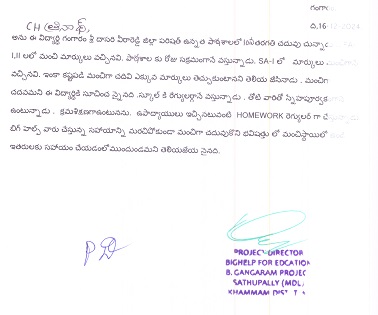 గంగారం
ది.16
CH
అను ఈ విద్యార్థి గంగారం శ్రీ దాసరి వీరారెడ్డి జిల్లా పరిషత్ ఉన్నత పాఠశాలలో 10వ తరగతి చదువు చున్నాడు
I,II లలో మంచి మార్కులు వచ్చినవి. పాఠశాల కు రోజు సక్రమంగానే వస్తున్నాడు. SA-I లో మార్కులు
వచ్చినవి. ఇంకా కష్టపడి మంచిగా చదివి ఎక్కువ మార్కులు తెచ్చుకుంటానని తెలియ జేసినాడు . మంచిగా
చదవమని ఈ విద్యార్థికి సూచించనైనది .స్కూల్ కి రెగ్యులర్గానే వస్తున్నాడు . తోటి వారితో స్నేహపూర్వక
ఉంటున్నాడు . క్రమశిక్షణగాఉంటునను. ఉపాధ్యాయులు ఇచ్చినటువంటి HOMEWORK రెగ్యులర్ గా
బిగ్ హెల్ప్ వారు చేస్తున్న సహాయాన్ని మరచిపోకుండా మంచిగా చదువుకొని భవిషత్తు లో మంచిస్థాయిలో
ఇతరులకు సహాయం చేయడంలోముందుండమని తెలియజేయ నైనది.
PROJECT DIRECTOR
BIGHELP FOR EDCATION
B. GANGARAM PROJEC
SATHUPALLY (MDL)
KHAMMAM DIST